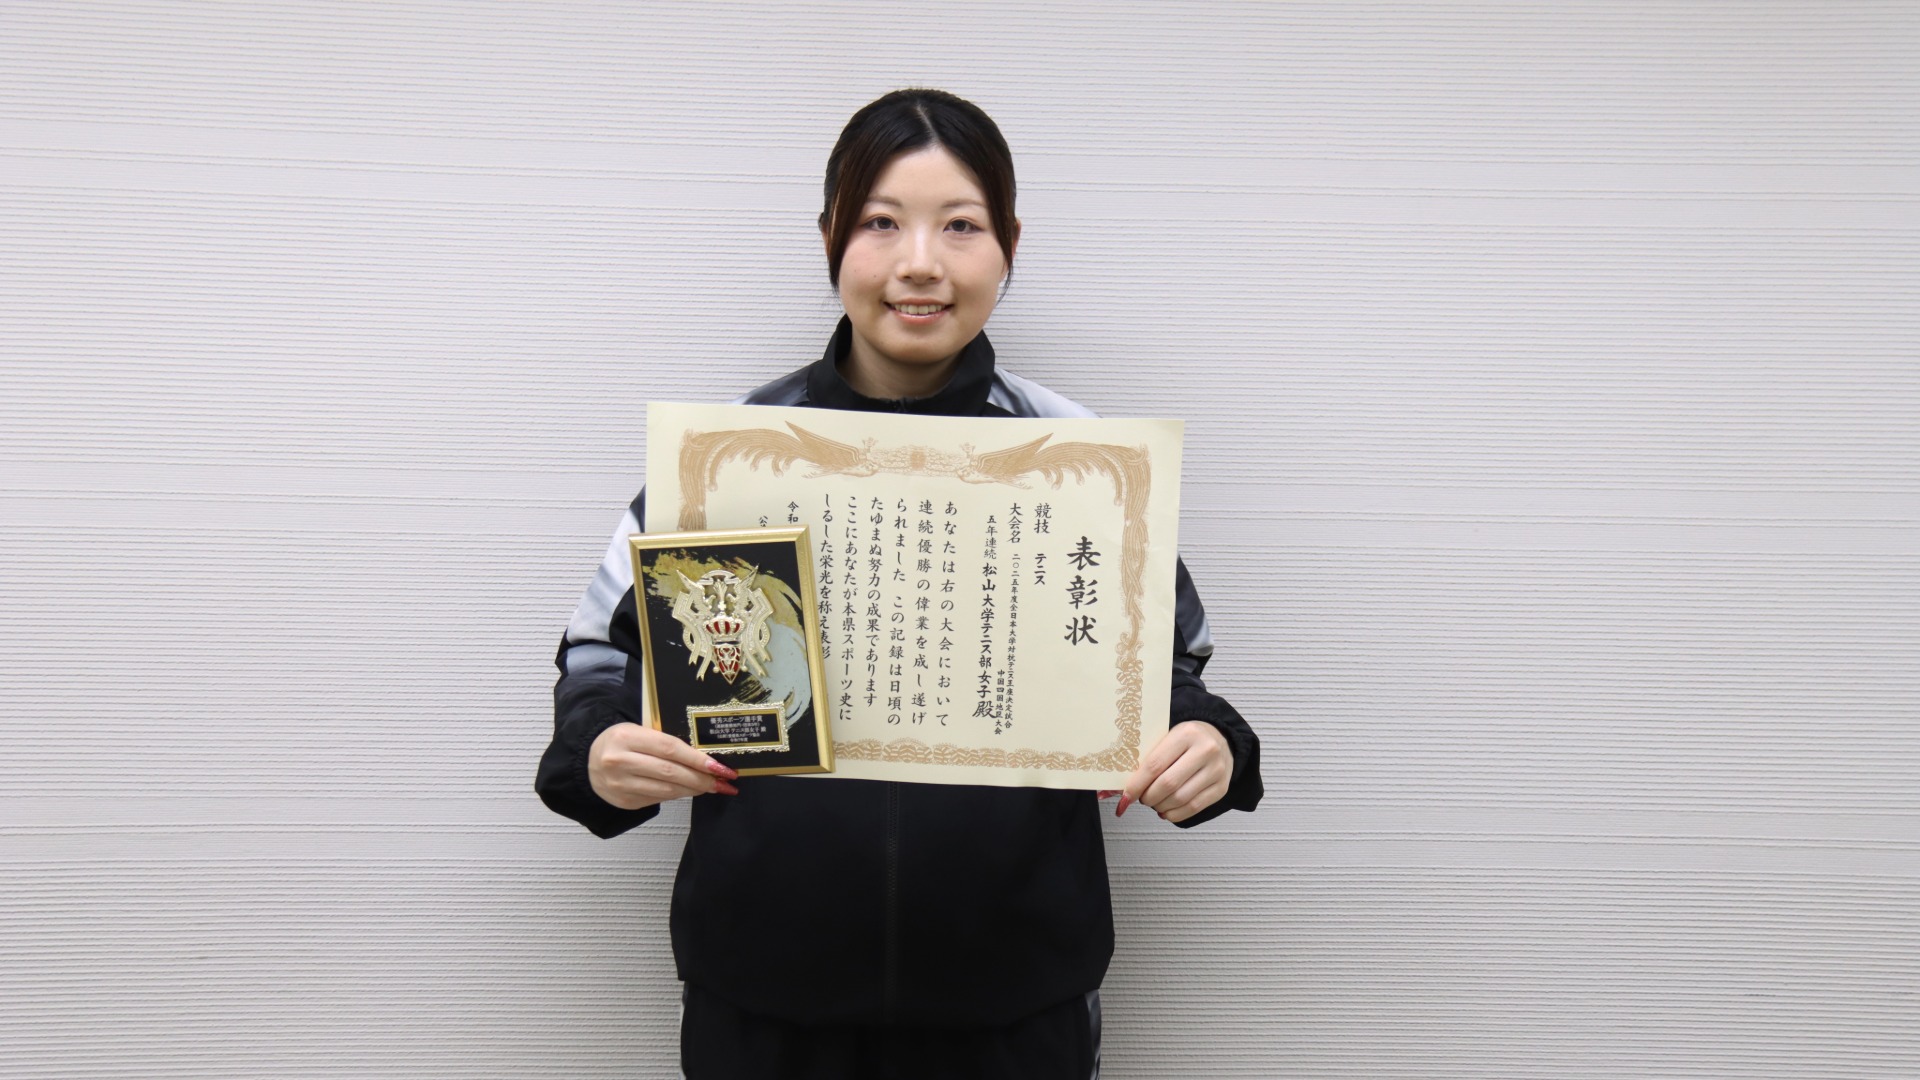 表彰状
競技 テニス
大会名 二〇二五年度全日本大学対抗テニス王座決定試合
中国四国地区大会
五年連続 松山大学テニス部女子殿
あなたは右の大会において
連続優勝の偉業を成し遂げ
られました この記録は日頃の
たゆまぬ努力の成果であります
ここにあなたが本県スポーツ史に
しるした栄光を称え表彰
令和
公
優秀スポーツ選手賞
松山大学 テニス部女子 殿